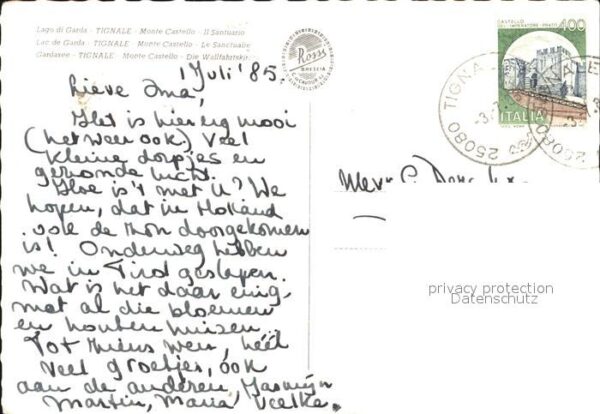 Lago di Garda - TIGNALE - Monte Castello - Il Santuario
Lac de Garda - TIGNALE - Monte Castello - Le Sanctuaire
Gardasee - TIGNALE - Monte Castello - Die Wallfahrtskirche
Rossi
BRESCIA
CASTELLO
DELL'IMPERATORE - PRATO
400
ITALIA
25080 TIGNALE
1 Juli '85.
Lieve Oma,
Het is hier erg mooi
(het weer ook) Veel
kleine dorpjes en
gezonde lucht.
Hoe is 't met U? We
hopen, dat in Holland
ook de zon doorgekomen
is! Onderweg hebben
we in Tirol geslapen.
Wat is het daar enig,
met al die bloemen
en houten huizen...
Tot ziens weer, héél
veel groetjes, óók
aan de anderen, Jasmijn
Martin, Maria,
Mevr
privacy protection
Datenschutz